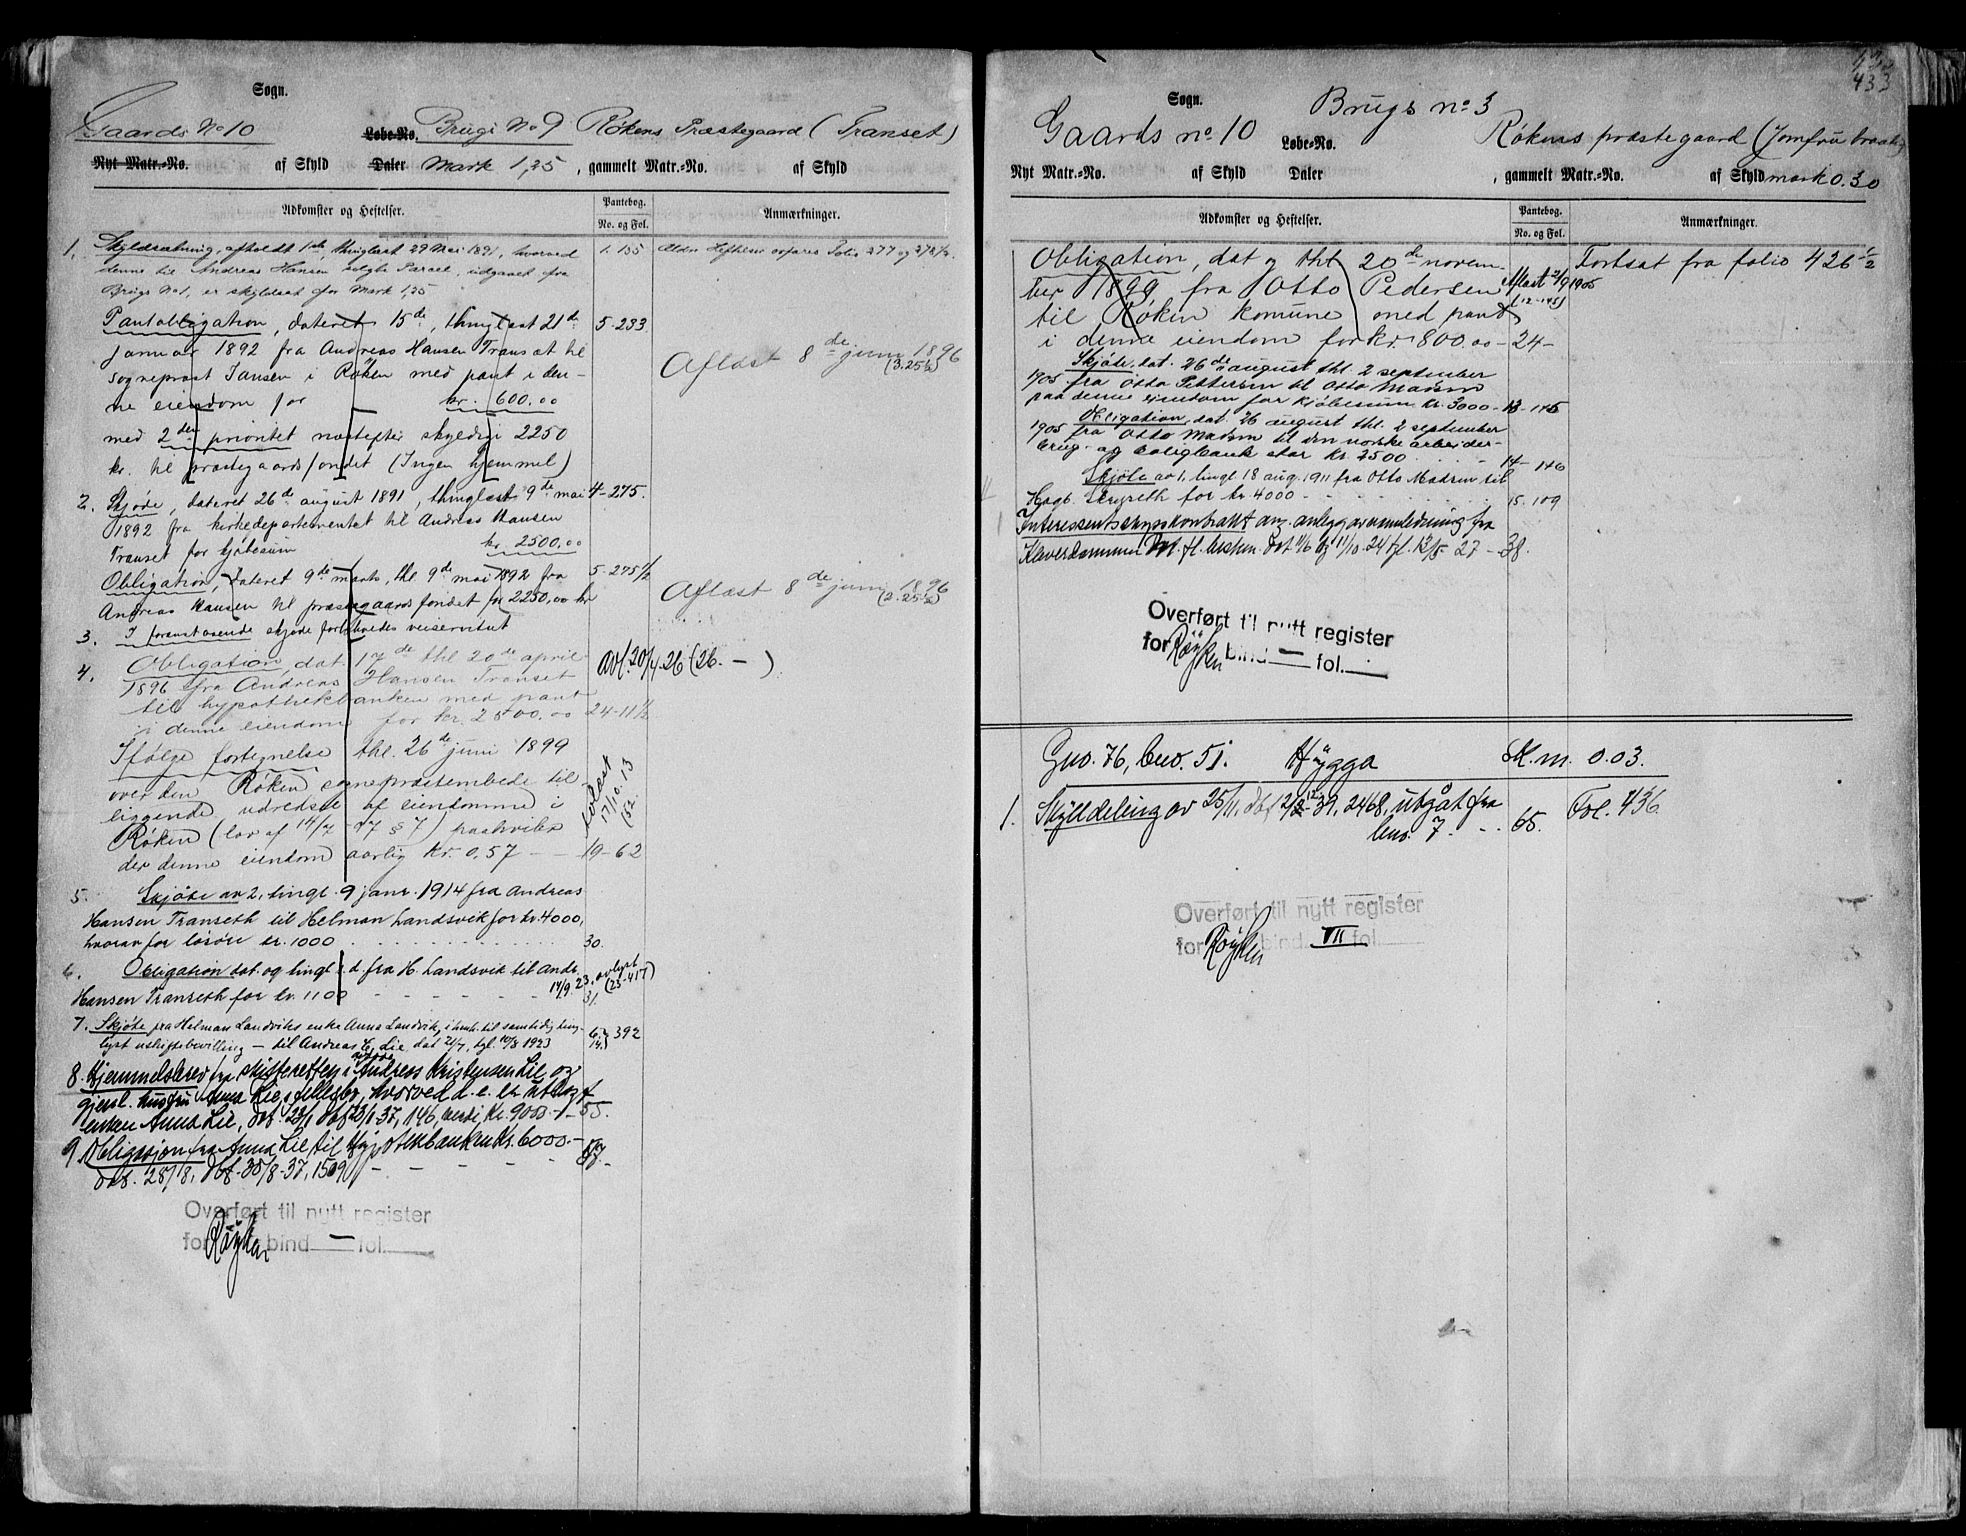 Sogn.
Gaards No 10 Løbe-No. Brugs No 9 Røkens Præstegaard (Transet)
Nyt Matr.-No. af Skyld Daler Mark 1,35 , gammelt Matr.-No. af Skyld
Adkomster og Heftelser. Pantebog. No. og Fol. Anmærkninger.
1. Skyldsætning, afholdt 1ste, thinglæst 29 Mai 1891, hvorved 1. 155 Ældre Heftelser anføres Folio 277 og 278½.
denne til Andreas Hansen solgte Parcel, udgaaet fra
Brugs No 1, er skyldsat for Mark 1,35
Pantobligation, dateret 15de, thinglæst 21de 5-233.
januar 1892 fra Andreas Hansen Transet til
sogneprest Jansen i Røken med pant i den- Aflæst 8de juni 1896
ne eiendom for kr. 600.00 (3.25½)
med 2den prioritet næstefter skyldige 2250
kr. til præstegaardsfondet (Ingen hjemmel)
2. Skjøde, dateret 26de august 1891, thinglæst 9de mai 4-275.
1892 fra kirkedepartementet til Andreas Hansen
Transet, for kjøbesum kr. 2500,00
Obligation, dateret 9de marts, thl. 9de mai 1892 fra 5-275½
Andreas Hansen til præstegaardsfondet for 2250,00 kr Aflæst 8de juni 1896
(2.25½)
3. I foranstaaende skjøde forbeholdes veiservitut
4. Obligation dat 17de thl 20de april Avl. 20/4.26 (26. — )
1896 fra Andreas Hansen Transet
til hypothekbanken med pant
i denne eiendom for kr. 2500.00 24-11½
Ifølge fortegnelse thl. 26de juni 1899
over den Røken sognepræstembede til
liggende udredsel af eiendomme i
Røken (lov af 14/7 - 97 § 7) paahviler
der denne eiendom aarlig Kr. 0,57 — — 19-62
Avlæst 17/10.13 (52.
5. Skjøte av 2, tingl. 9 janr. 1914 fra Andreas
Hansen Transeth til Helman Landsvik for kr. 4000,
hvorav for løsøre kr. 1000 30.
6. Obligation dat og tingl s. d. fra H. Landsvik til Andr.
Hansen Transeth for kr. 1100 - - - 31.
14/9.23. avlyst (23-417)
7. Skjøte fra Helman Landviks enke Anna Landvik, i henh. til samtidig ting-
lyst uskiftebevilling — til Andreas C. Lie dat 21/7, tgl. 10/8 1923 392
8. Hjemmelsbrev fra skifteretten i avdøde Andreas Kristensen Lie og
gjenl. hustru Anna Lies fellesbo, hvorved d. e. er utlagt
enken Anna Lie, dat. 22/1 dbf 23/1-37, 146, verdi Kr. 9000.- 55.
9. Obligasjon fra Anna Lie til Hypotekbanken Kr. 6000.-
dat. 28/8, dbf. 30/8-37, 1509 - - - - 57.
Overført til nytt register
for Røyken bind — fol.
433
Sogn. Brugs no 3
Gaards no 10 Løbe-No. Røkens præstegaard (Jomfrubraaten)
Nyt Matr.-No. af Skyld Daler , gammelt Matr.-No. af Skyld mark 0.30
Adkomster og Heftelser. Pantebog. No. og Fol. Anmærkninger.
Obligation, dat og thl 20de novem- Fortsat fra folio 426½
ber 1899 fra Otto Pedersen Aflæst 2/9 1905
til Røken komune med pant (12-145)
i denne eiendom for kr. 800.00 - 24-
Skjøte, dat. 26de august thl. 2 september
1905 fra Otto Pettersen til Otto Madsen
paa denne eiendom for kjøbesum kr. 3000 - 13-145
Obligation, dat. 26 august thl. 2 september
1905 fra Otto Madsen til den norske arbeider-
brug- og boligbank stor kr. 2500 14-146
Skjøte av 1, tingl 18 aug. 1911 fra Otto Madsen til
Hagb. Skryseth for kr 4000 15. 109
Interessentskapskontrakt ang. anlegg av vannledning fra
Kleverdammen m. fl. bestem. dat 11/6 og 11/10.24 tgl. 13/5 27 - 38.
Overført til nytt register
for Røyken bind — fol.
Gno. 76, bno. 51. Hygga Sk.m. 0.03.
1. Skylddeling av 25/11, dbf 2/12-39, 2468, utgåt fra 65. Fol. 436
bno. 7.
Overført til nytt register
for Røyken bind VII fol.